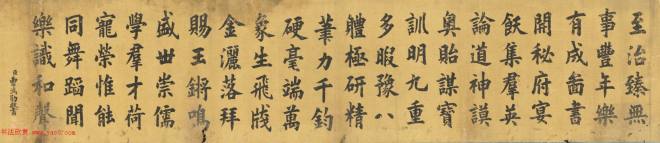 至治臻無
事豐年樂
有成啚書
開秘府宴
飫集羣英
論道神謨
奧貽謀寶
訓明九重
多暇豫八
體極研精
筆力千鈞
硬毫端萬
象生飛牋
金灑落拜
賜玉鏘鳴
盛世崇儒
學羣才荷
寵榮惟能
同舞蹈聞
樂識和聲
书法欣赏 www.yac8.com